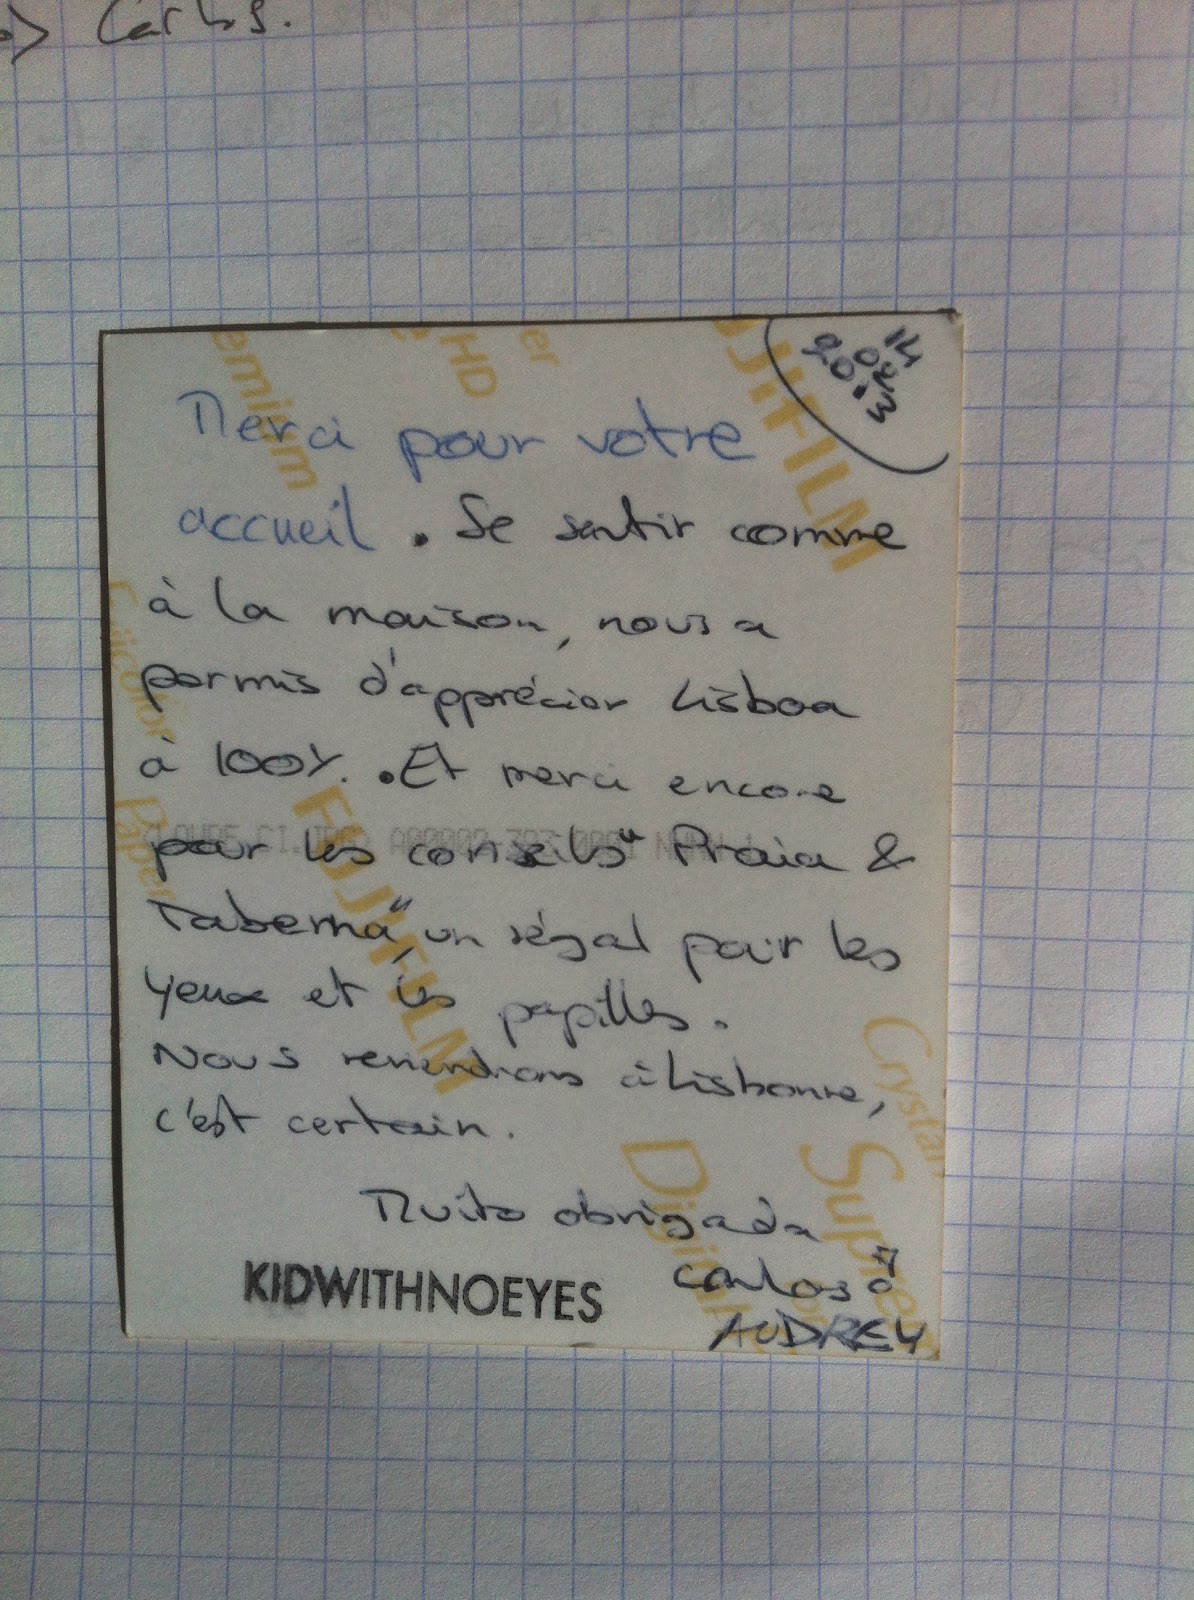 Carlos.
14
04
2013
Merci pour votre
accueil. Se sentir comme
à la maison, nous a
permis d'apprécier Lisboa
à 100%. Et merci encore
pour les conseils "Praia &
Taberna", un régal pour les
yeux et les papilles.
Nous reviendrons à Lisbonne,
c'est certain.
Muito obrigada
Carlos
AUDREY
KIDWITHNOEYES
FUJIFILM
HD
FUJIFILM
Fujicolor
Paper
Crystal
Supreme
Digital